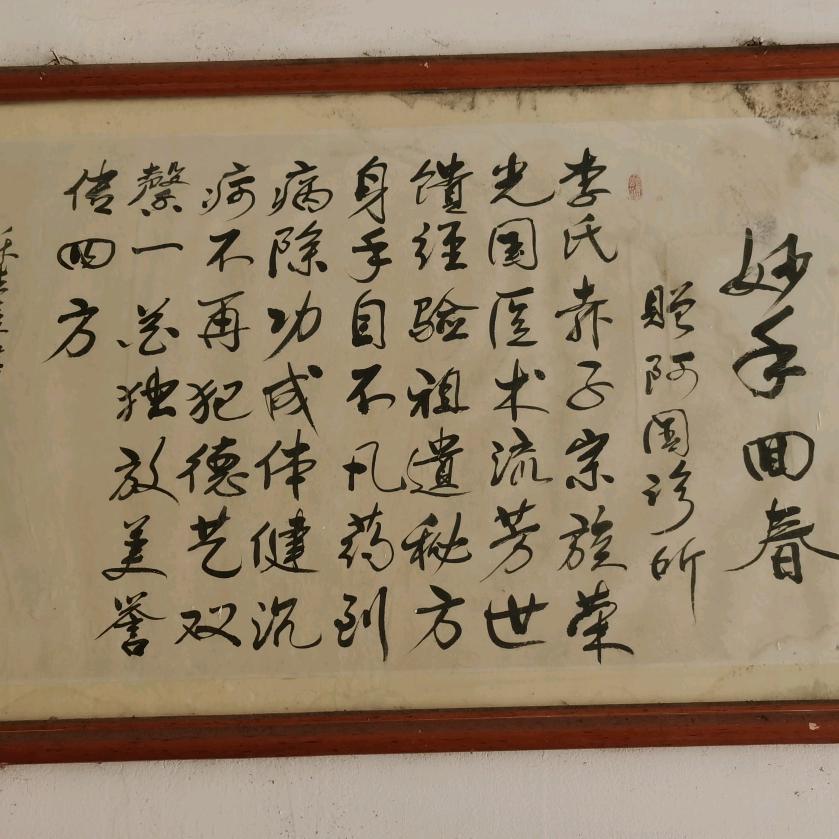 妙手回春
赠阿国诊所
李氏赤子宗族荣
光国医术流芳世
馈经验祖遗秘方
身手自不凡药到
病除功成体健沉
疴不再犯德艺双
馨一花独放美誉
传四方